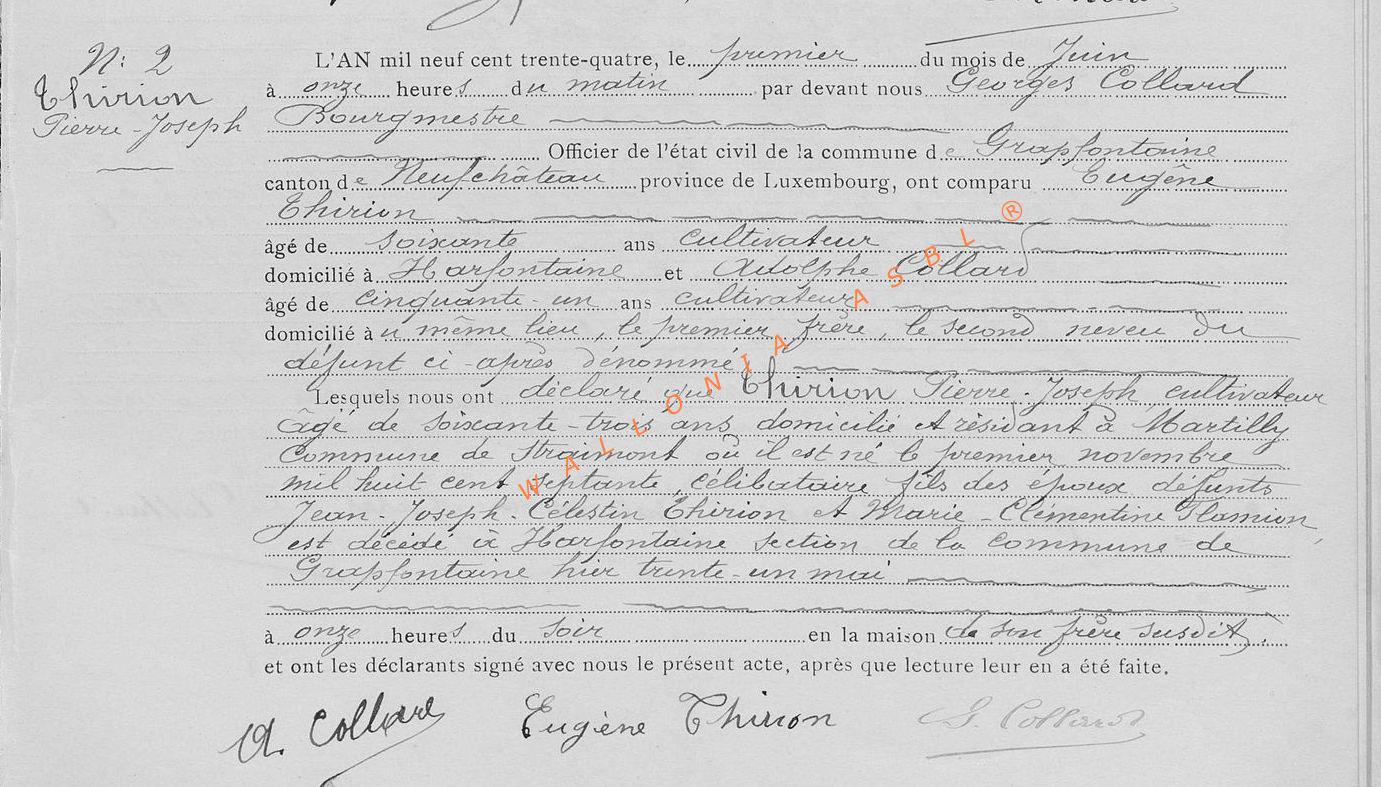 N: 2
Thirion
Pierre-Joseph
L'AN mil neuf cent trente-quatre, le premier du mois de Juin
à onze heures du matin par devant nous Georges Collard
Bourgmestre
Officier de l'état civil de la commune de Grapfontaine
canton de Neufchâteau province de Luxembourg, ont comparu Eugène
Thirion
âgé de soixante ans cultivateur
domicilié à Harfontaine et Adolphe Collard
âgé de cinquante-un ans cultivateur
domicilié à u même lieu, le premier frère, le second neveu du
défunt ci-après dénommé
Lesquels nous ont déclaré que Thirion Pierre-Joseph, cultivateur
âgé de soixante-trois ans domicilié et résidant à Martilly
Commune de Straimont où il est né le premier novembre
mil huit cent septante, célibataire fils des époux défunts
Jean-Joseph Célestin Thirion et Marie-Clémentine Flamion,
est décédé à Harfontaine section de la commune de
Grapfontaine hier trente-un mai
à onze heures du soir en la maison de son frère susdit.
et ont les déclarants signé avec nous le présent acte, après que lecture leur en a été faite.
A. Collard Eugène Thirion G. Collard
WALLONIA ASBL ®